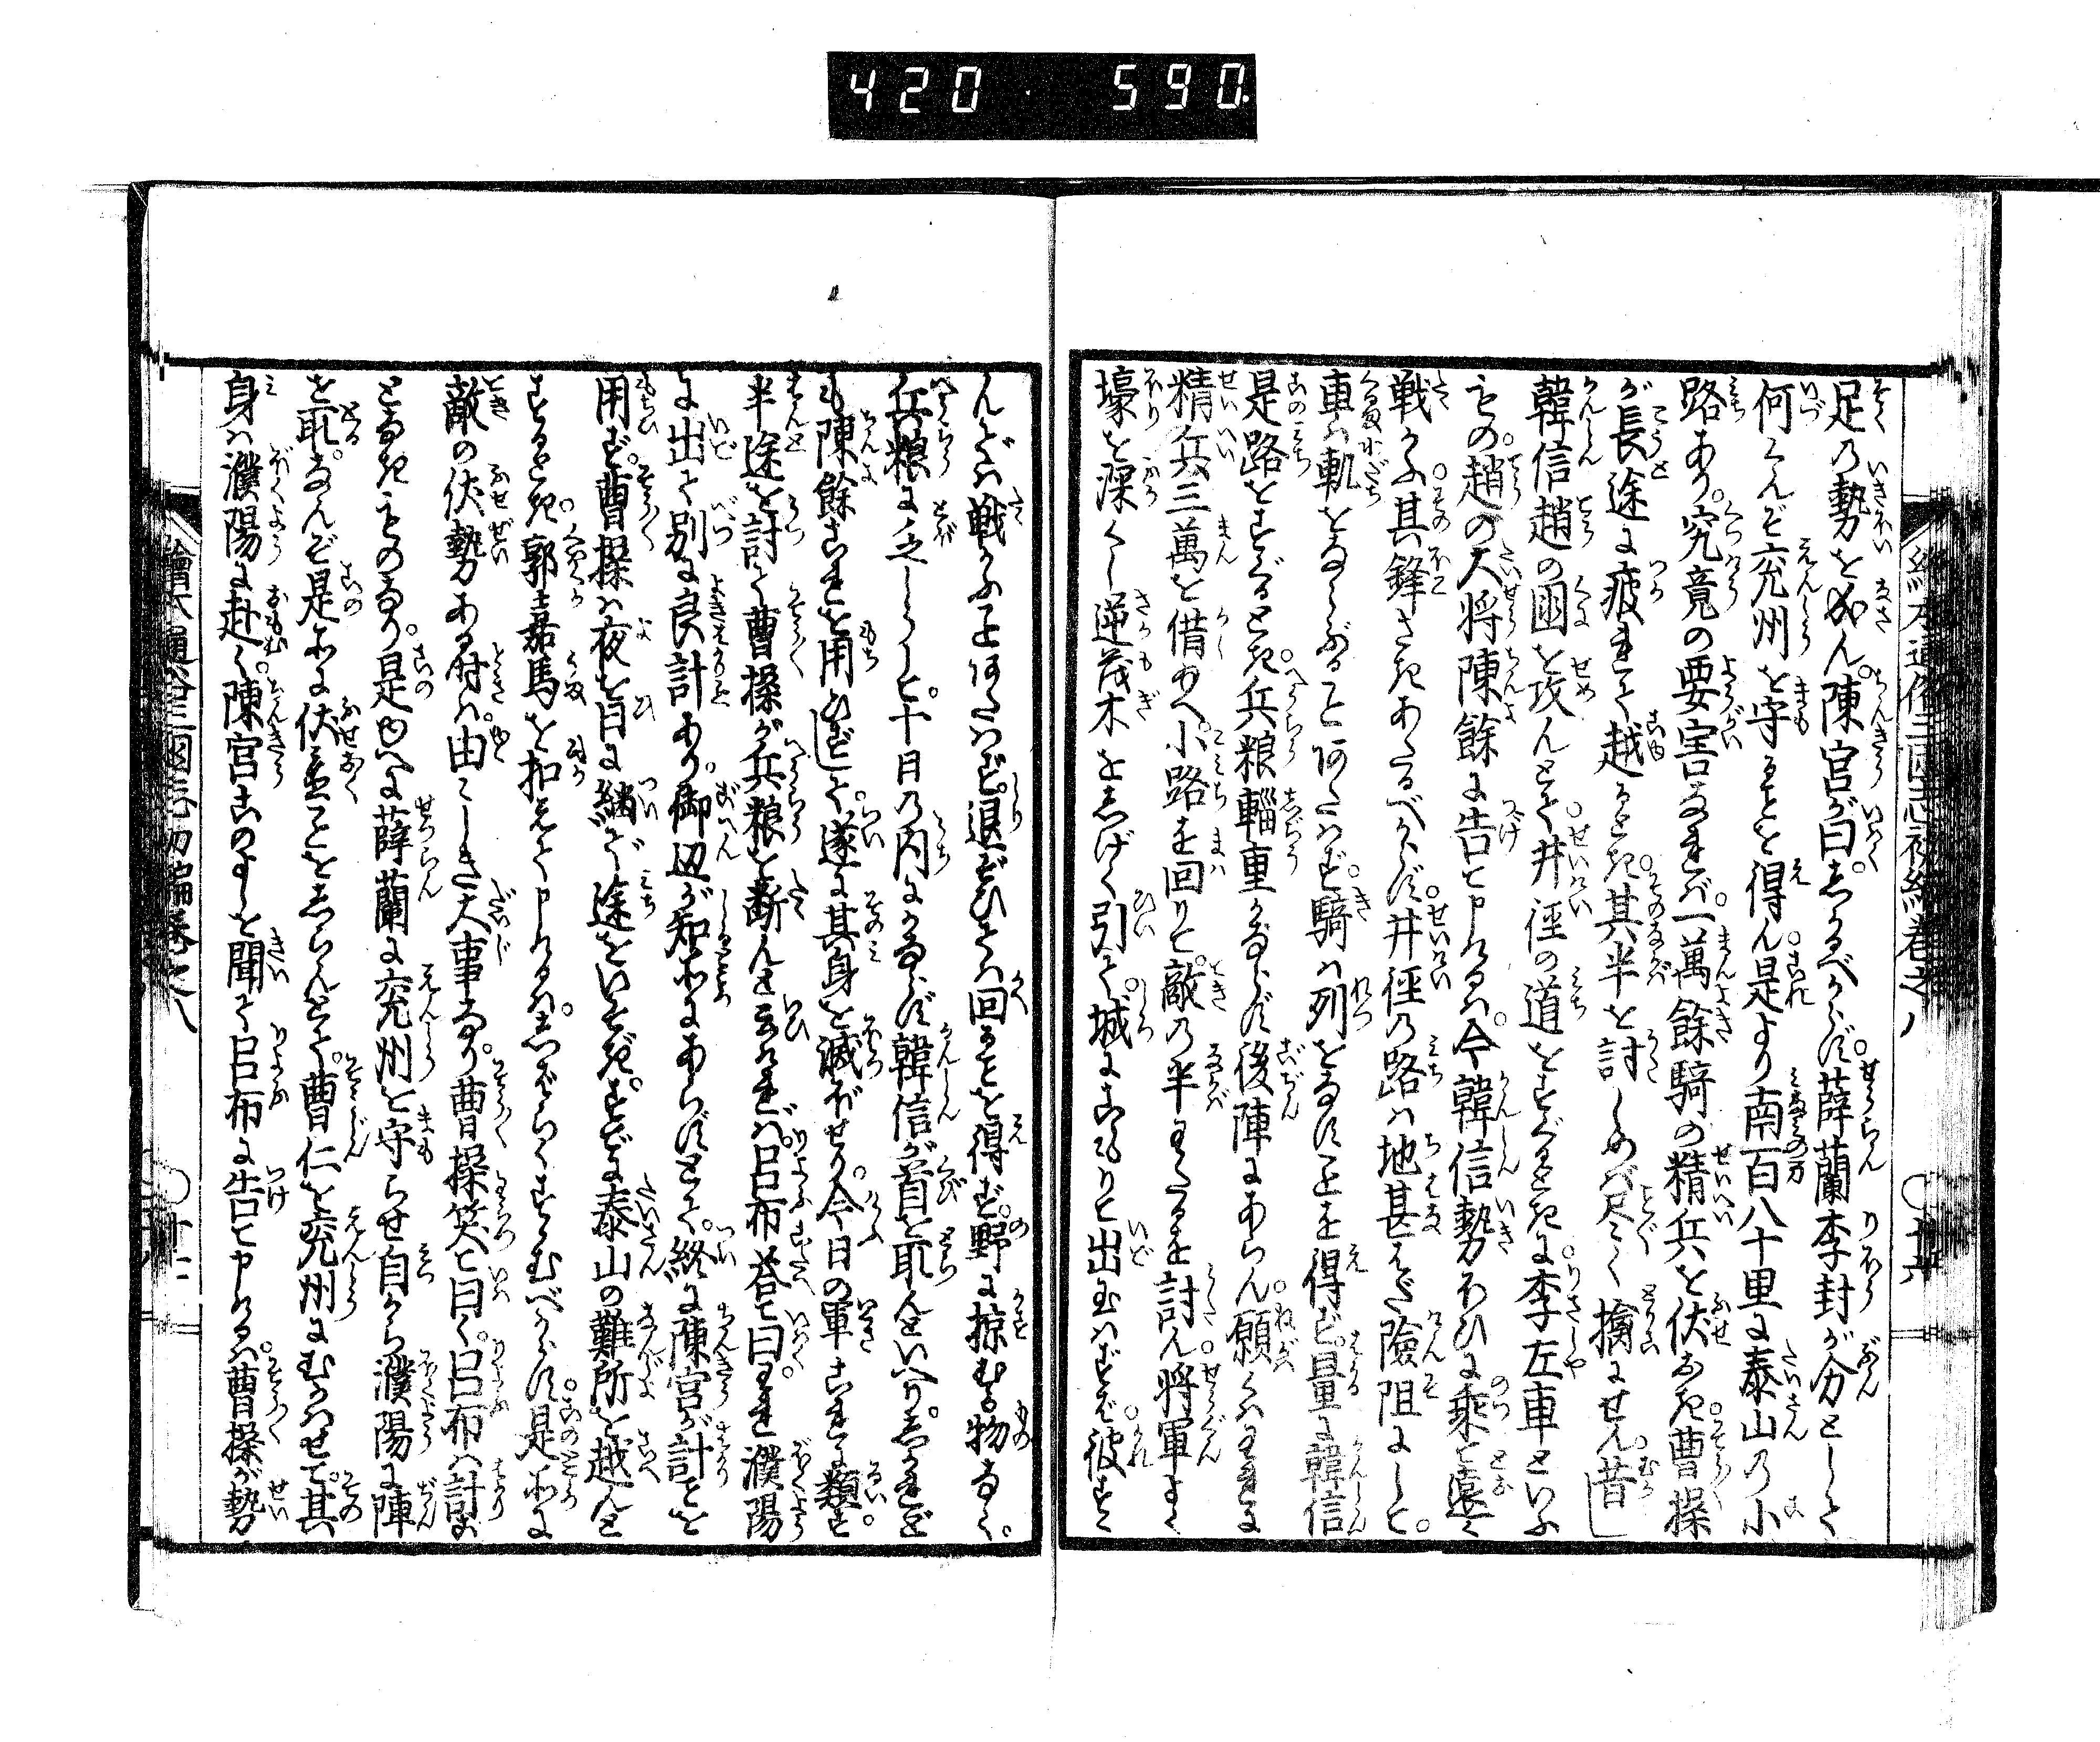 420 590
繪本通俗三國志初編卷之八
足の勢を成ん。陳宮が曰。しかるべからず。薛蘭李封が分として
何くんぞ兗州を守ることを得ん。是より南百八十里に泰山の小
路あり。究竟の要害なれば。一萬餘騎の精兵を伏おき。曹操
が長途に疲れて越るとき。其半を討しめば尽く擒にせん。昔
韓信趙の國を攻んとて。井徑の道をすぐるときに。李左車といふ
もの。趙の大将陳餘に告て申けるは。今韓信勢ひに乘て遠く
戦かふ。其鋒さきあたるべからず。井徑の路は地甚はだ險阻にして。
車は軌をならぶることあたはず。騎は列をなすことを得ず。量に韓信
是路をすぐるとき。兵粮輜重かならず後陣にあらん。願くはわれに
精兵三萬を借給へ。小路を回りて。敵の半をたちを討ん。将軍よく
壕を深くし逆茂木をしげく引て。城にこもりて出玉はずば。彼すゝ
んでは戦かふことあたはず。退ぞひては回ることを得ず。野に掠むる物なく。
兵粮に乏しくして。十日の内にかならず韓信が首を取んといへり。しかれど
も陳餘これを用ひずして。遂に其身を滅ぼせり。今日の軍これに類す。
半途を討て曹操が兵粮を断んと云ければ。吕布荅て曰。われ濮陽
に出て別に良計あり。御辺が知所にあらずとて。終に陳宮が計ごとを
用ず。曹操は夜を日に継で途をいそぎ。すでに泰山の難所を越んと
するとき。郭嘉馬を扣えて申けるは。しばらくすゝむべからず。是所に
敵の伏勢ある時は。由々しき大事なり。曹操笑て曰く。吕布は計ごと
となきものなり。是ゆへに薛蘭に兗州を守らせ自から濮陽に陣
を取。なんぞ是所に伏置ことをしらんとて。曹仁を兗州にむかはせて。其
身は濮陽に赴く。陳宮このよしを聞て吕布に告て申けるは。曹操が勢
繪本通俗三國志初編卷之八